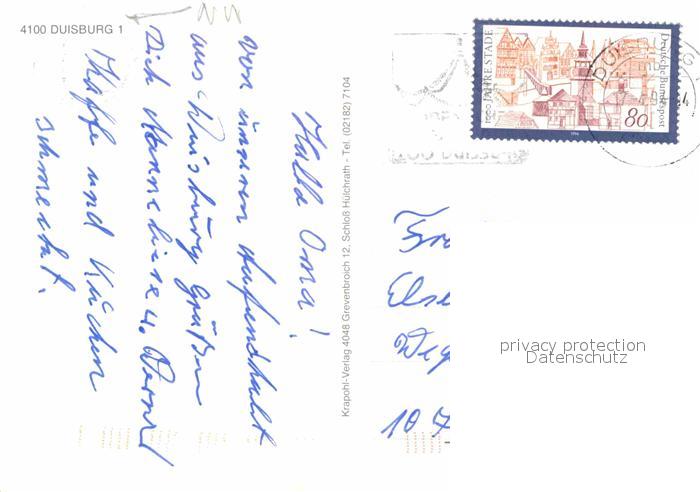 4100 DUISBURG 1
Hallo Oma!
von unseren Aufendhalt
aus Duisburg Grüßen
Dich Hanneliese u. Bernd
Kaffe und Kuchen
schmeckt.
Krapohl-Verlag 4048 Grevenbroich 12, Schloß Hülchrath - Tel. (02182) 7104
1000 JAHRE STADE
Deutsche Bundespost
80
1994
Frau
Else
Weg
10 7
privacy protection
Datenschutz